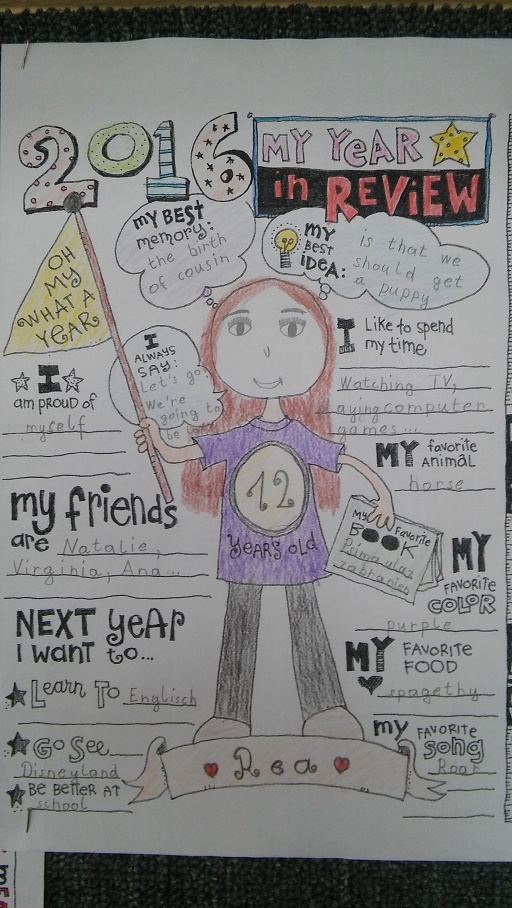 2016
MY YEAR
in REVIEW
my BEST
memory:
the birth
of cousin
my
BEST
IDEA:
is that we
should get
a puppy
OH
MY
WHAT A
YEAR
I
ALWAYS
SAY:
Let's go!
We're
going to
be
I
am PROUD of
myself
I Like to spend
my time
Watching TV,
playing computer
games...
MY favorite
ANIMAL
horse
my friends
are Natalie,
Virginia, Ana...
12
YEARS OLD
My Favorite
BOOK
MY
FAVORITE
COLOR
purple
NEXT YEAR
I want to...
Learn To Englisch
Go See
Disneyland
BE BETTER AT
school
MY FAVORITE
FOOD
spagethy
my FAVORITE
song
Roar
Rea